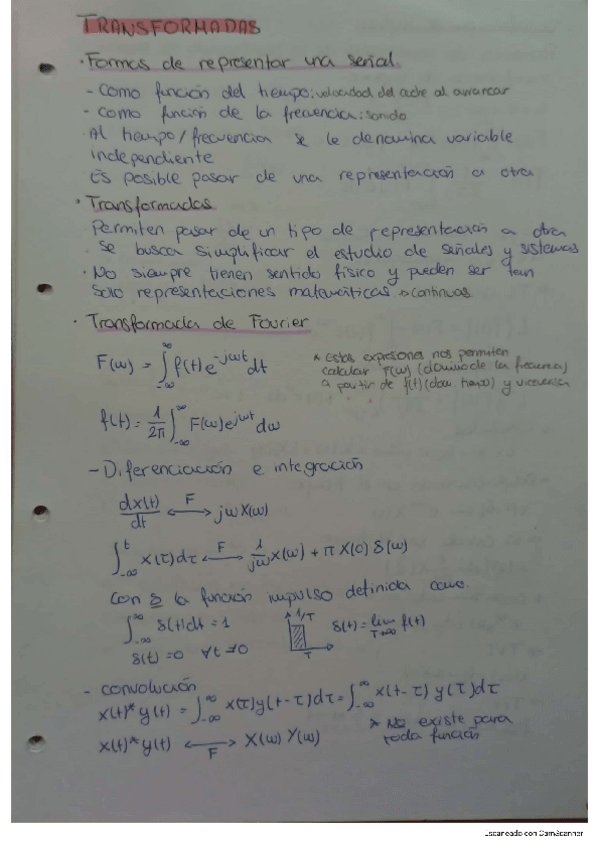 TRANSFORMADAS
· Formas de representar una señal.
- Como función del tiempo: velocidad del coche al arrancar
- Como función de la frecuencia: sonido
· Al tiempo/frecuencia se le denomina variable
independiente
Es posible pasar de una representación a otra
· Transformadas
Permiten pasar de un tipo de representación a otra
· Se busca simplificar el estudio de señales y sistemas
· No siempre tienen sentido físico y pueden ser tan
solo representaciones matemáticas. → continuas
· Transformada de Fourier
F(ω) = ∫_{-∞}^{∞} f(t)e^{-jωt} dt
* Estas expresiones nos permiten
calcular F(ω) (dominio de la frecuencia)
a partir de f(t) (dom. tiempo) y viceversa
f(t) = 1/2π ∫_{-∞}^{∞} F(ω)e^{jωt} dω
- Diferenciación e integración
dx(t)/dt ←F→ jω X(ω)
∫_{-∞}^{t} x(τ)dτ ←F→ 1/jω x(ω) + π X(0) δ(ω)
Con δ la función impulso definida como.
∫_{-∞}^{∞} δ(t)dt = 1
1/T
T
δ(t) = lim_{T→∞} f(t)
δ(t) = 0 ∀t ≠ 0
- convolución
x(t)*y(t) = ∫_{-∞}^{∞} x(τ)y(t-τ)dτ = ∫_{-∞}^{∞} x(t-τ) y(τ)dτ
x(t)*y(t) ←F→ X(ω) Y(ω)
* No existe para
toda función
Escaneado con CamScanner